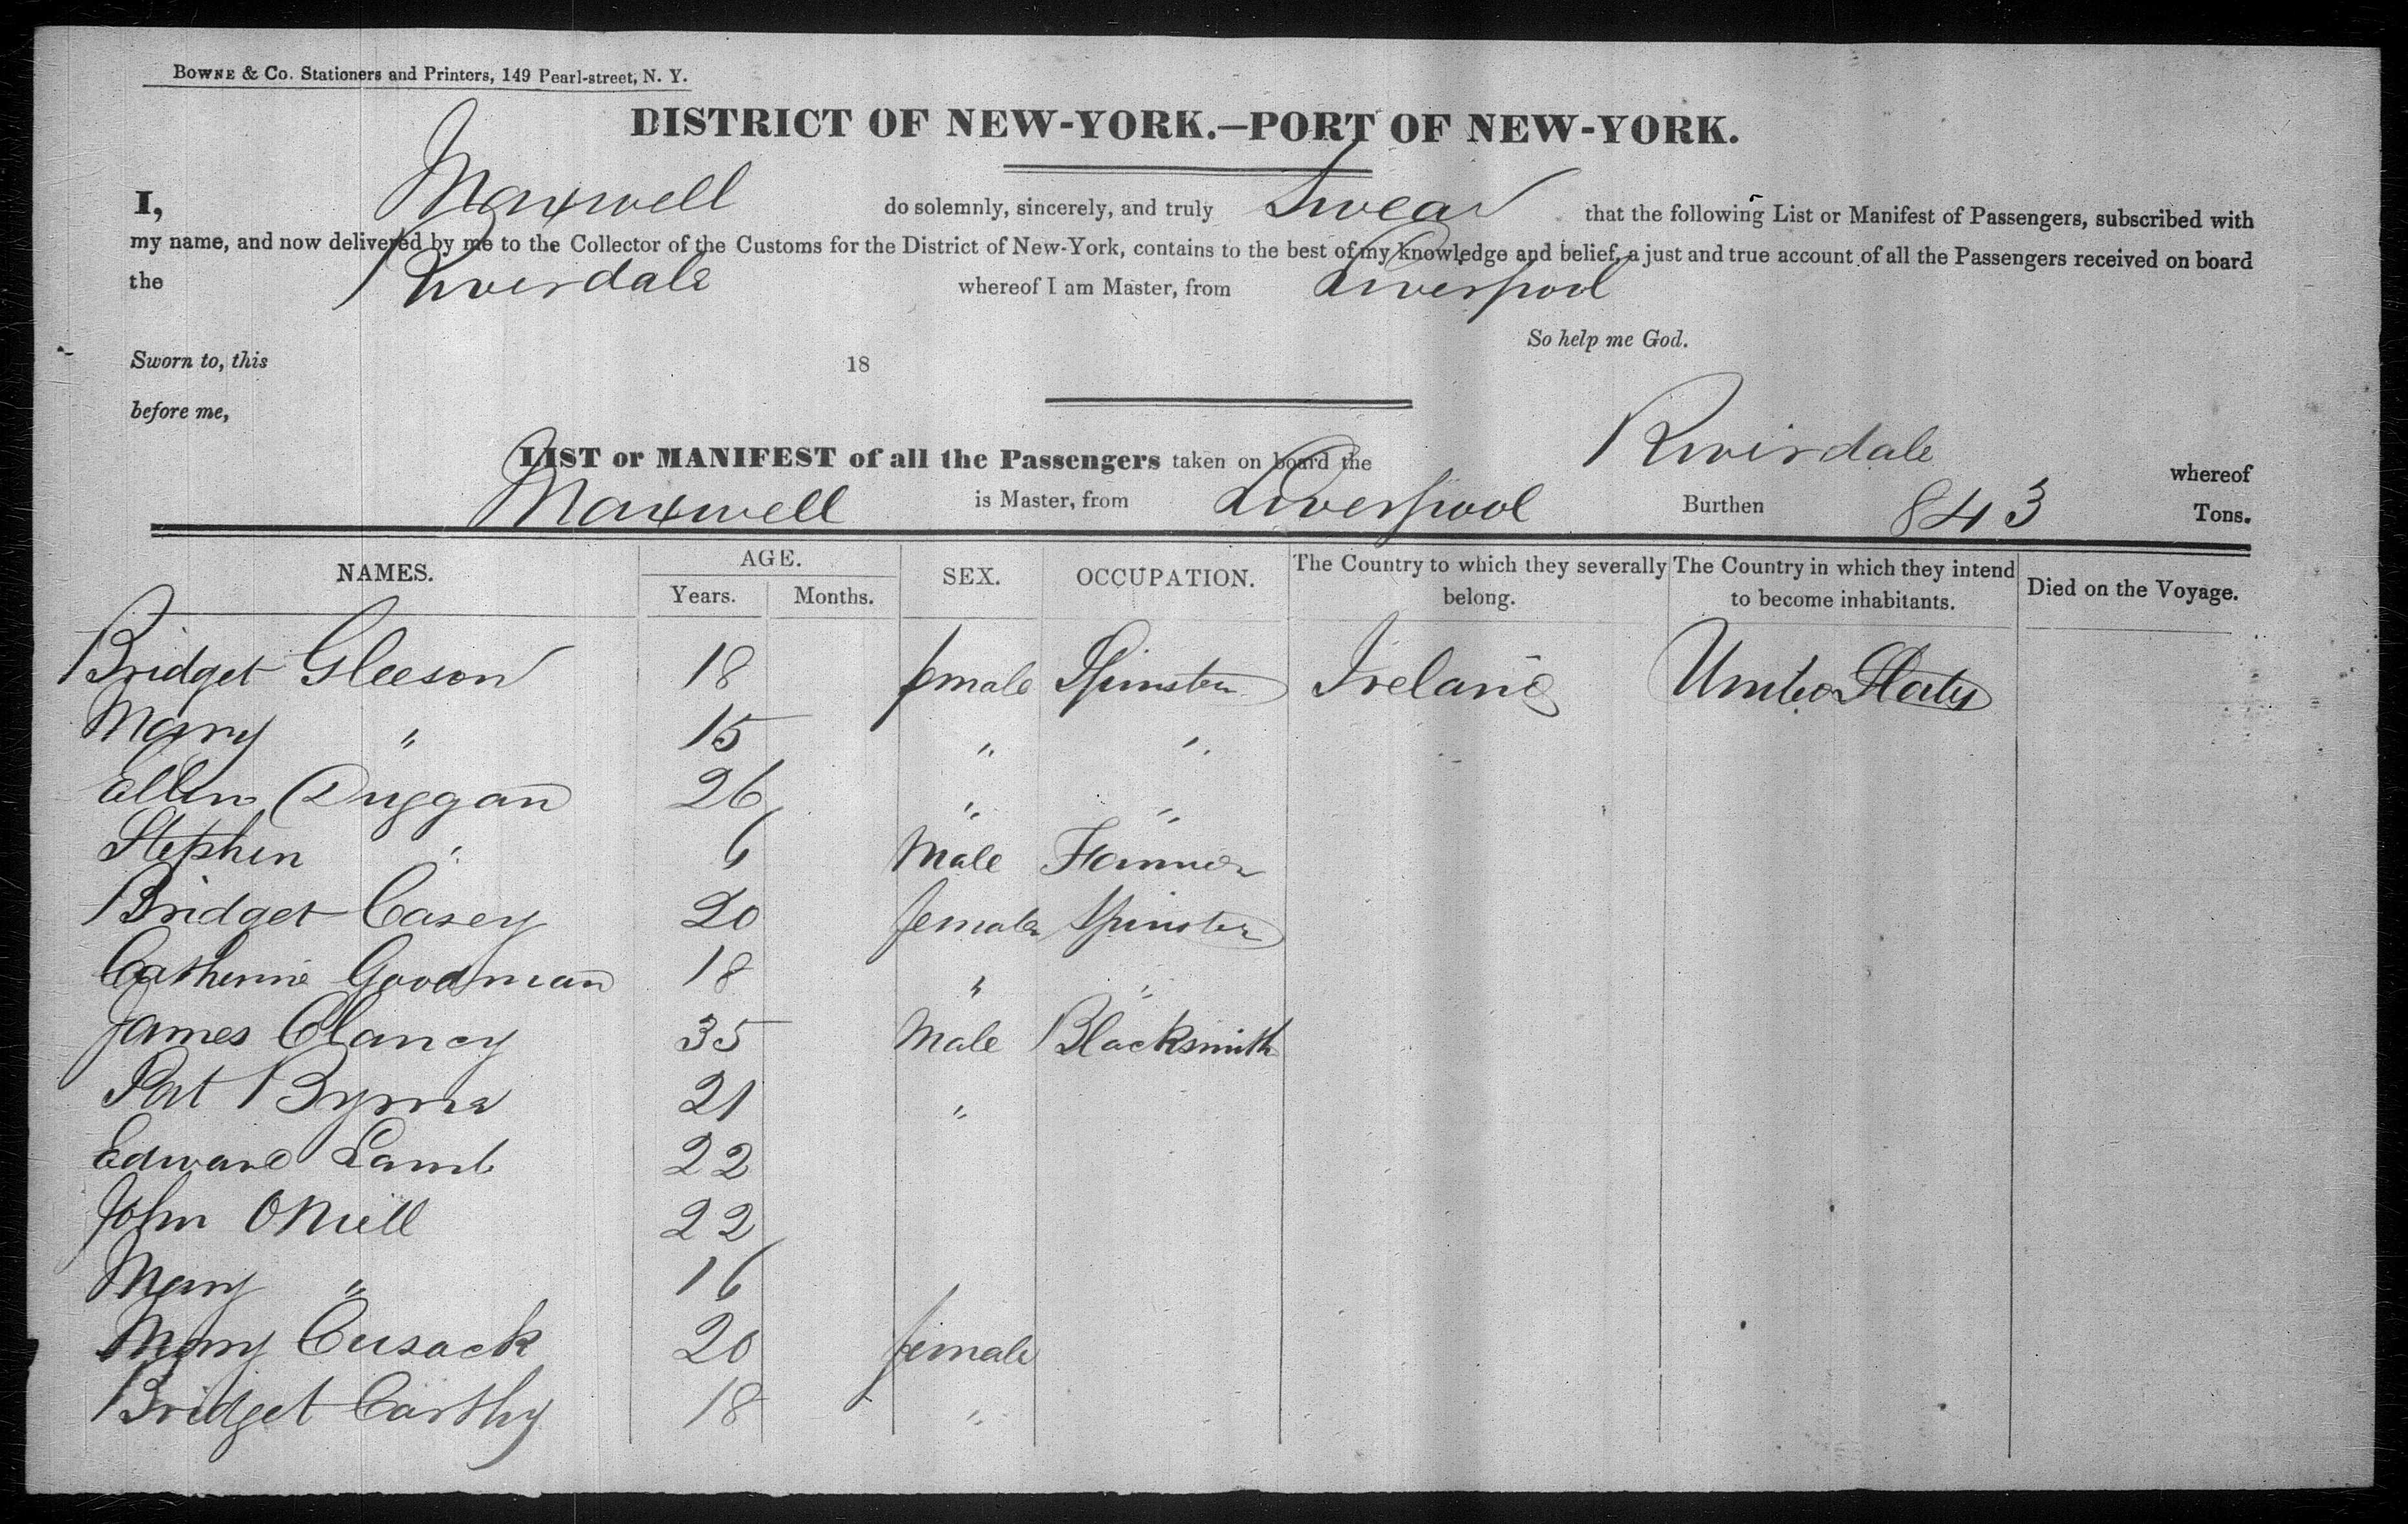 BOWNE & CO. Stationers and Printers, 149 Pearl-street, N. Y.
DISTRICT OF NEW-YORK.—PORT OF NEW-YORK.
I, Maxwell do solemnly, sincerely, and truly Swear that the following List or Manifest of Passengers, subscribed with
my name, and now delivered by me to the Collector of the Customs for the District of New-York, contains to the best of my knowledge and belief, a just and true account of all the Passengers received on board
the Riverdale whereof I am Master, from Liverpool
So help me God.
Sworn to, this 18
before me,
LIST or MANIFEST of all the Passengers taken on board the Riverdale whereof
Maxwell is Master, from Liverpool Burthen 843 Tons.
NAMES. AGE. SEX. OCCUPATION. The Country to which they severally belong. The Country in which they intend to become inhabitants. Died on the Voyage.
Years. Months.
Bridget Gleeson 18 female Spinster Ireland United States
Mary " 15 " "
Ellen Duggan 26 " "
Stephen " 6 Male Farmer
Bridget Casey 20 female Spinster
Catherine Goodman 18 " "
James Clancy 35 Male Blacksmith
Pat Byrne 21 "
Edward Lamb 22
John ONeill 22
Mary " 16
Mary Cusack 20 female
Bridget Carthy 18 "